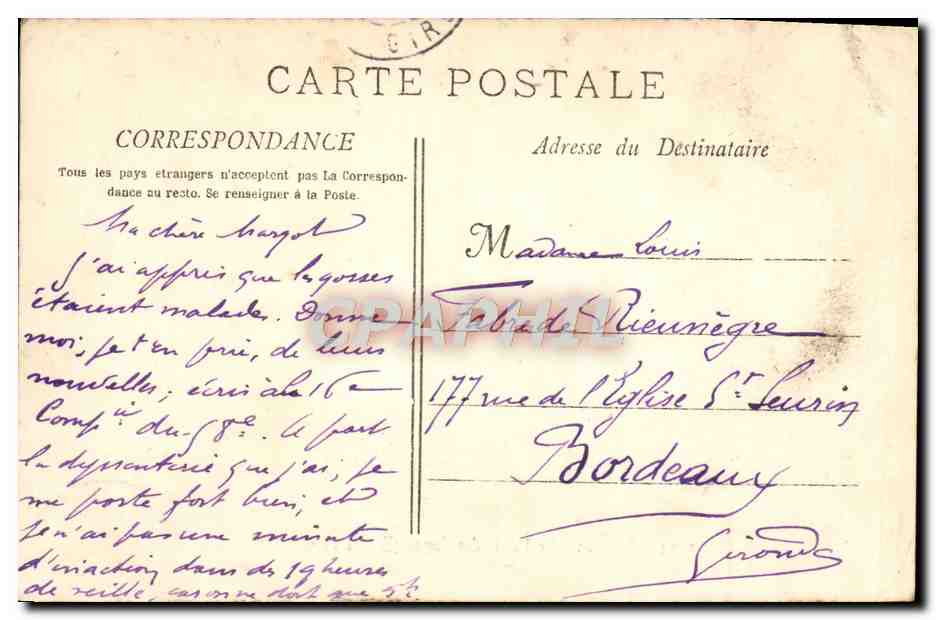 GIR
CARTE POSTALE
CORRESPONDANCE
Tous les pays etrangers n'acceptent pas La Correspon-
dance au recto. Se renseigner à la Poste.
Adresse du Destinataire
Ma chère Margot
j'ai appris que les gosses
étaient malades. Donne
moi, je t'en prie, de leurs
nouvelles; écris à la 16e
Compie du 58e. A part
la dyssenterie que j'ai, je
me porte fort bien, et
je n'ai pas une minute
d'inaction dans des 19 heures
de veille, car on ne dort que 5h.
Madame Louis
Fabre de Rieunègre
177 rue de l'Église St Seurin
Bordeaux
Gironde
CPAPHIL